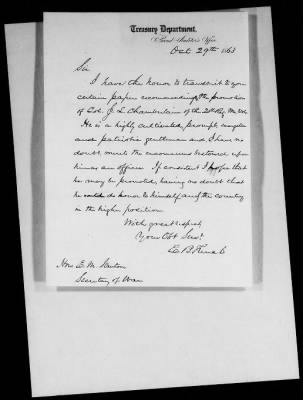 Treasury Department,
Second Auditor's Office
Oct 29th 1863
Sir
I have the honor to transmit to you
certain papers recommending the promotion
of Col. J. L. Chamberlain of the 20th Reg. M. Vol.
He is a highly cultivated
and patriotic gentleman and I have no
doubt, merits the encomiums bestowed upon
him as an officer. If consistent I hope that
he may be promoted, having no doubt that
he would do honor to himself and the country
in the higher position
With great respect
Your Obt Servt
E. B. French
Hon E. M. Stanton
Secretary of War